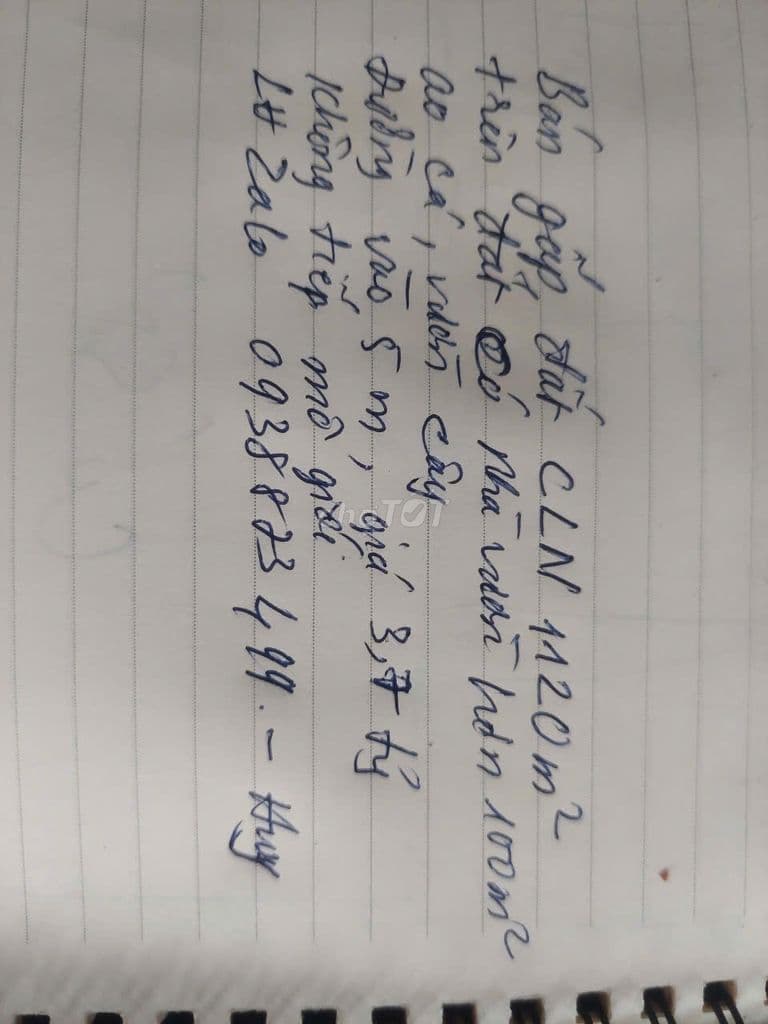 Bán gấp đất CLN 1120m²
trên đất có nhà vườn hơn 100m²
ao cá, vườn cây
Đường vào 5m, giá 3,7 tỷ
Không tiếp mô giới
LH Zalo 0938873499. - Huy
choTỐT